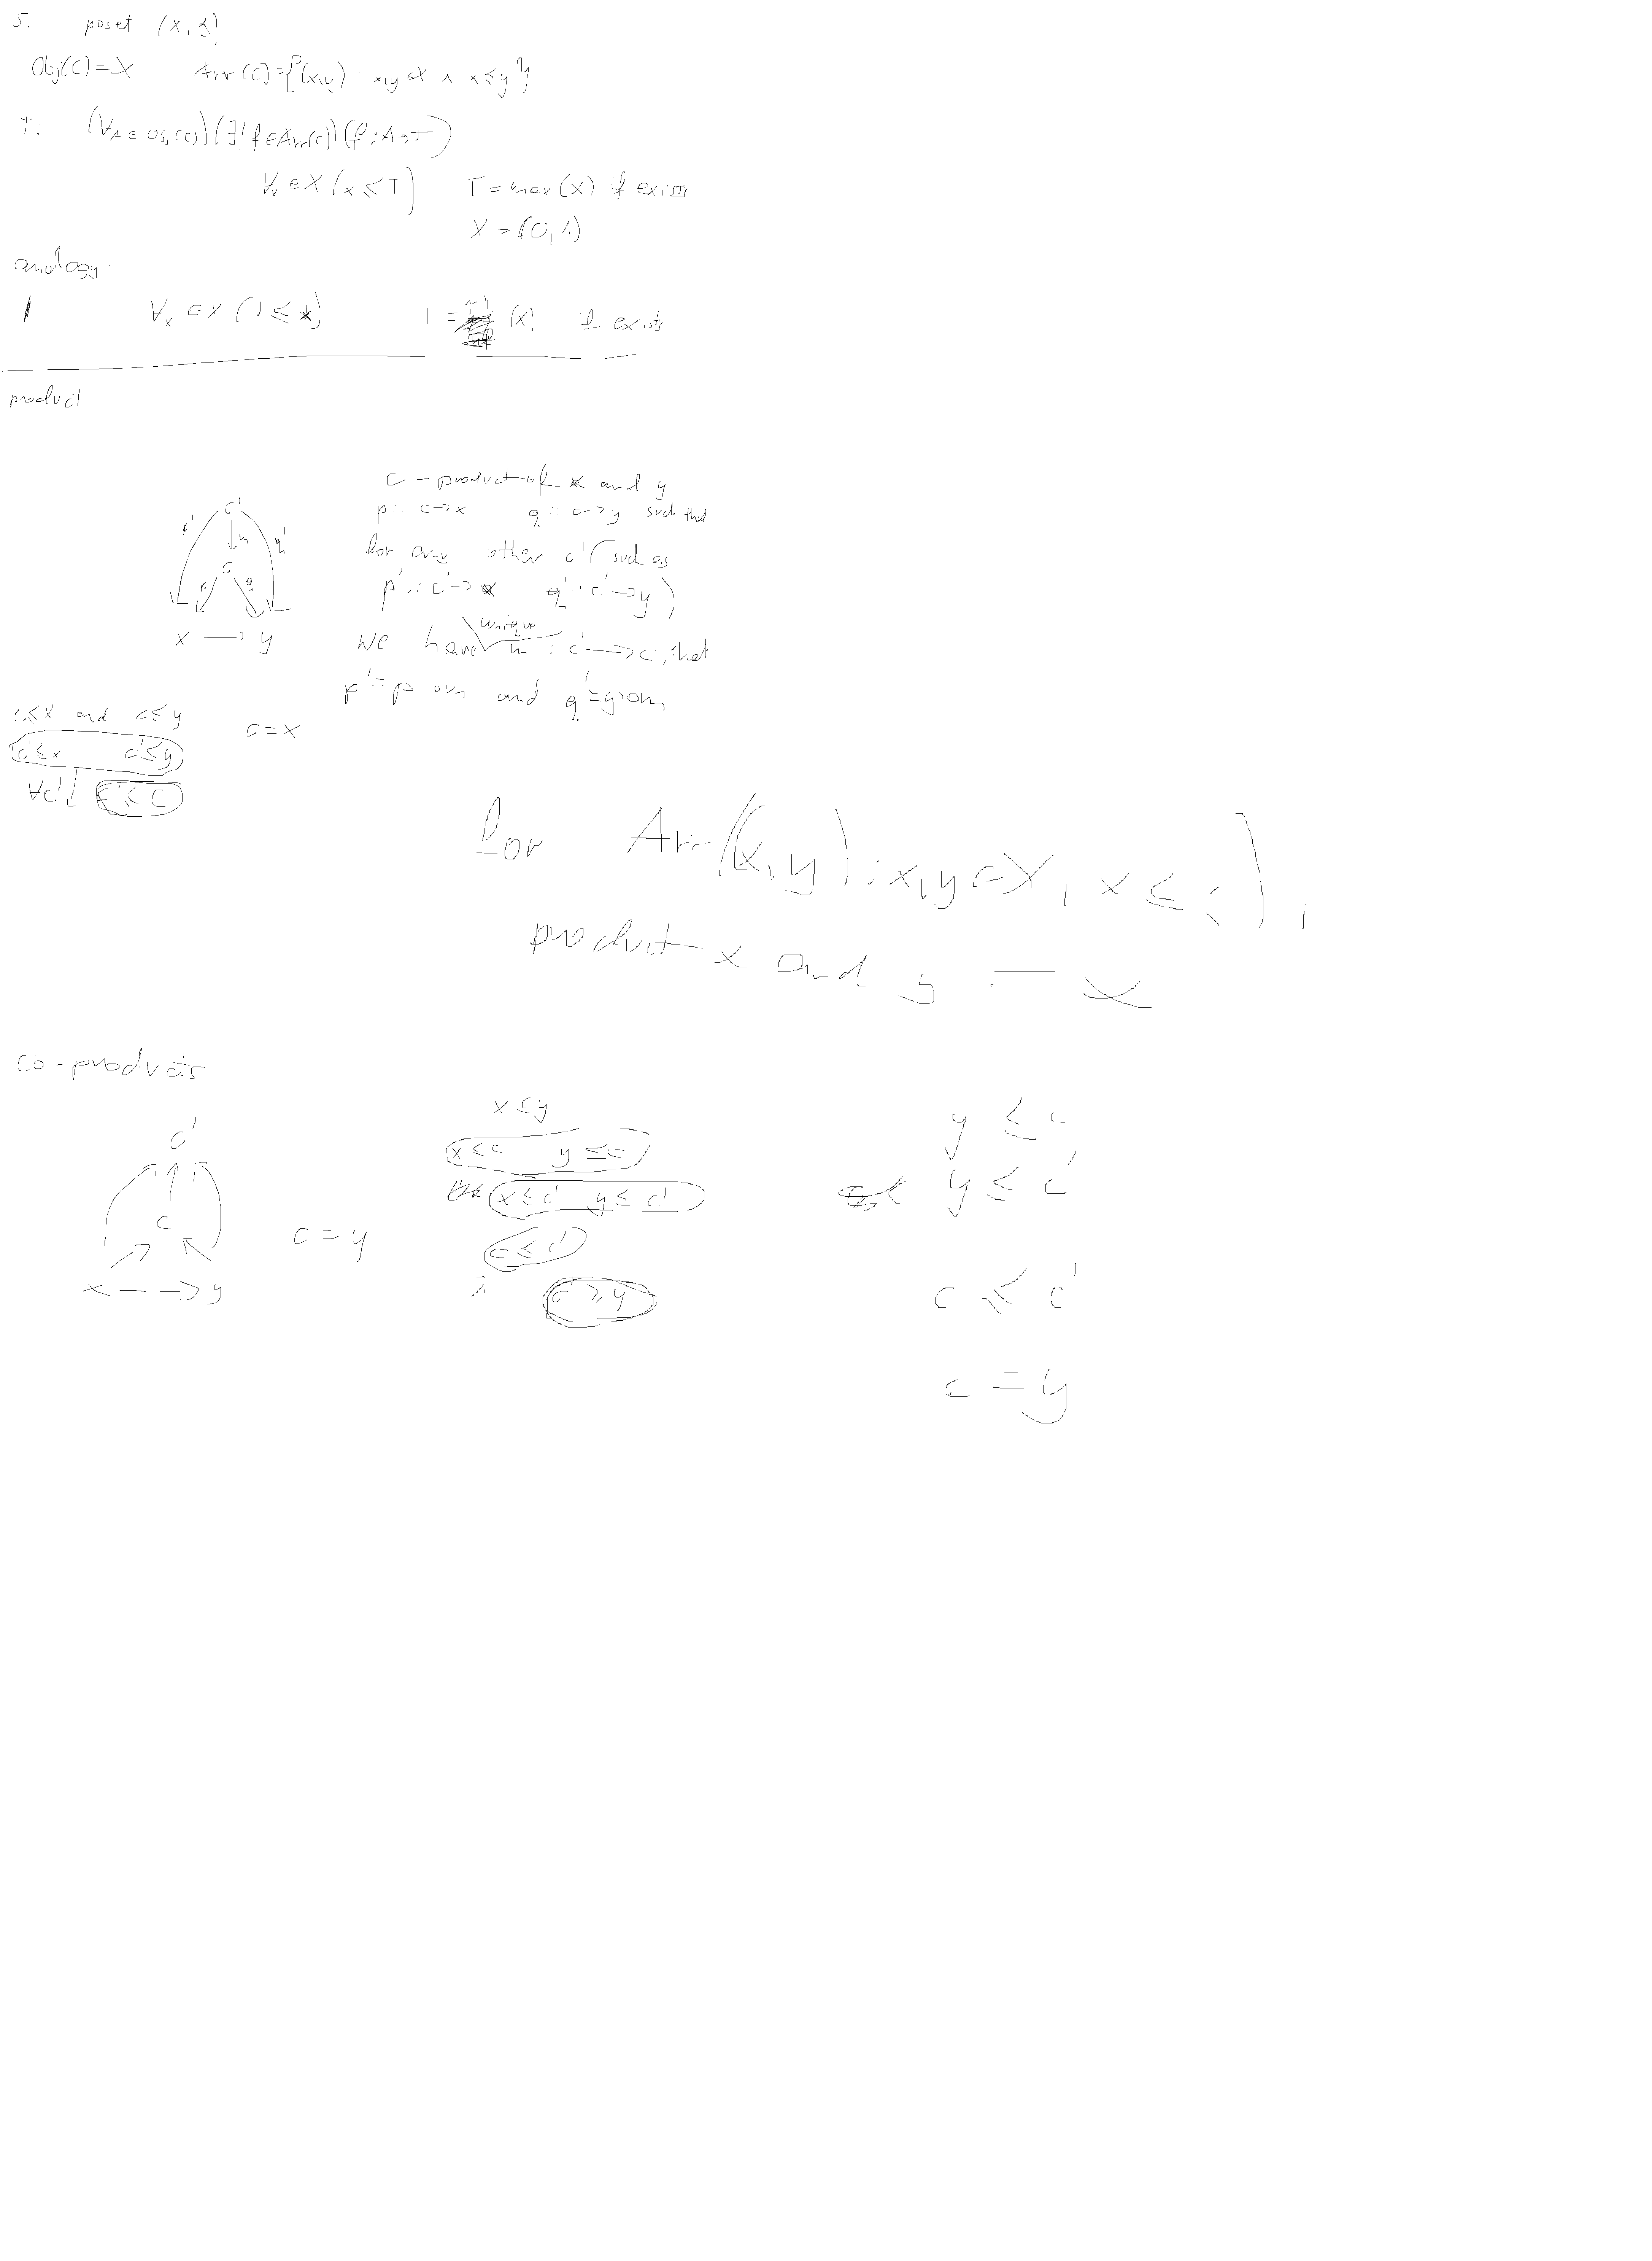 5. poset (X, ≤)
Obj(C)=X Arr(C)={(x,y) : x,y∈X ∧ x≤y}
T: (∀A∈Obj(C))(∃! f∈Arr(C))(f:A→T)
∀x∈X (x≤T) T=max(X) if exists
X=(0,1)
analogy:
I ∀x∈X (I≤x) I = min (X) if exists
product
c - product of x and y
p :: c→x q :: c→y such that
for any other c' (such as
p' :: c'→x q' :: c'→y)
we have unique m :: c'→c, that
p'=p∘m and q'=q∘m
c'
p' m q'
c
p q
x → y
c≤x and c≤y c=x
c'≤x c'≤y
∀c' c'≤c
for Arr((x,y) : x,y∈X, x≤y),
product x and y = x
co-products
c'
c
x → y
c=y
x≤y
x≤c y≤c
x≤c' y≤c'
c≤c'
c'≥y
y≤c
y≤c'
c≤c'
c=y